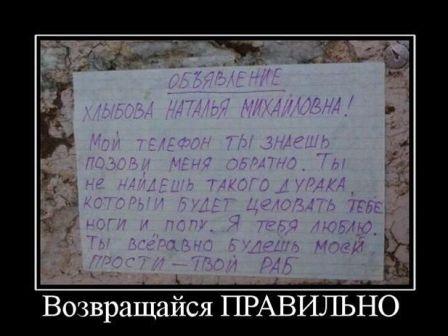 ОБЪЯВЛЕНИЕ
ХЛЫБОВА НАТАЛЬЯ МИХАЙЛОВНА!
МОЙ ТЕЛЕФОН ТЫ ЗНАЕШЬ
ПОЗОВИ МЕНЯ ОБРАТНО. ТЫ
НЕ НАЙДЕШЬ ТАКОГО ДУРАКА,
КОТОРЫЙ БУДЕТ ЦЕЛОВАТЬ ТЕБЕ
НОГИ И ПОПУ. Я ТЕБЯ ЛЮБЛЮ.
ТЫ ВСЁРАВНО БУДЕШЬ МОЕЙ
ПРОСТИ — ТВОЙ РАБ
Возвращайся ПРАВИЛЬНО